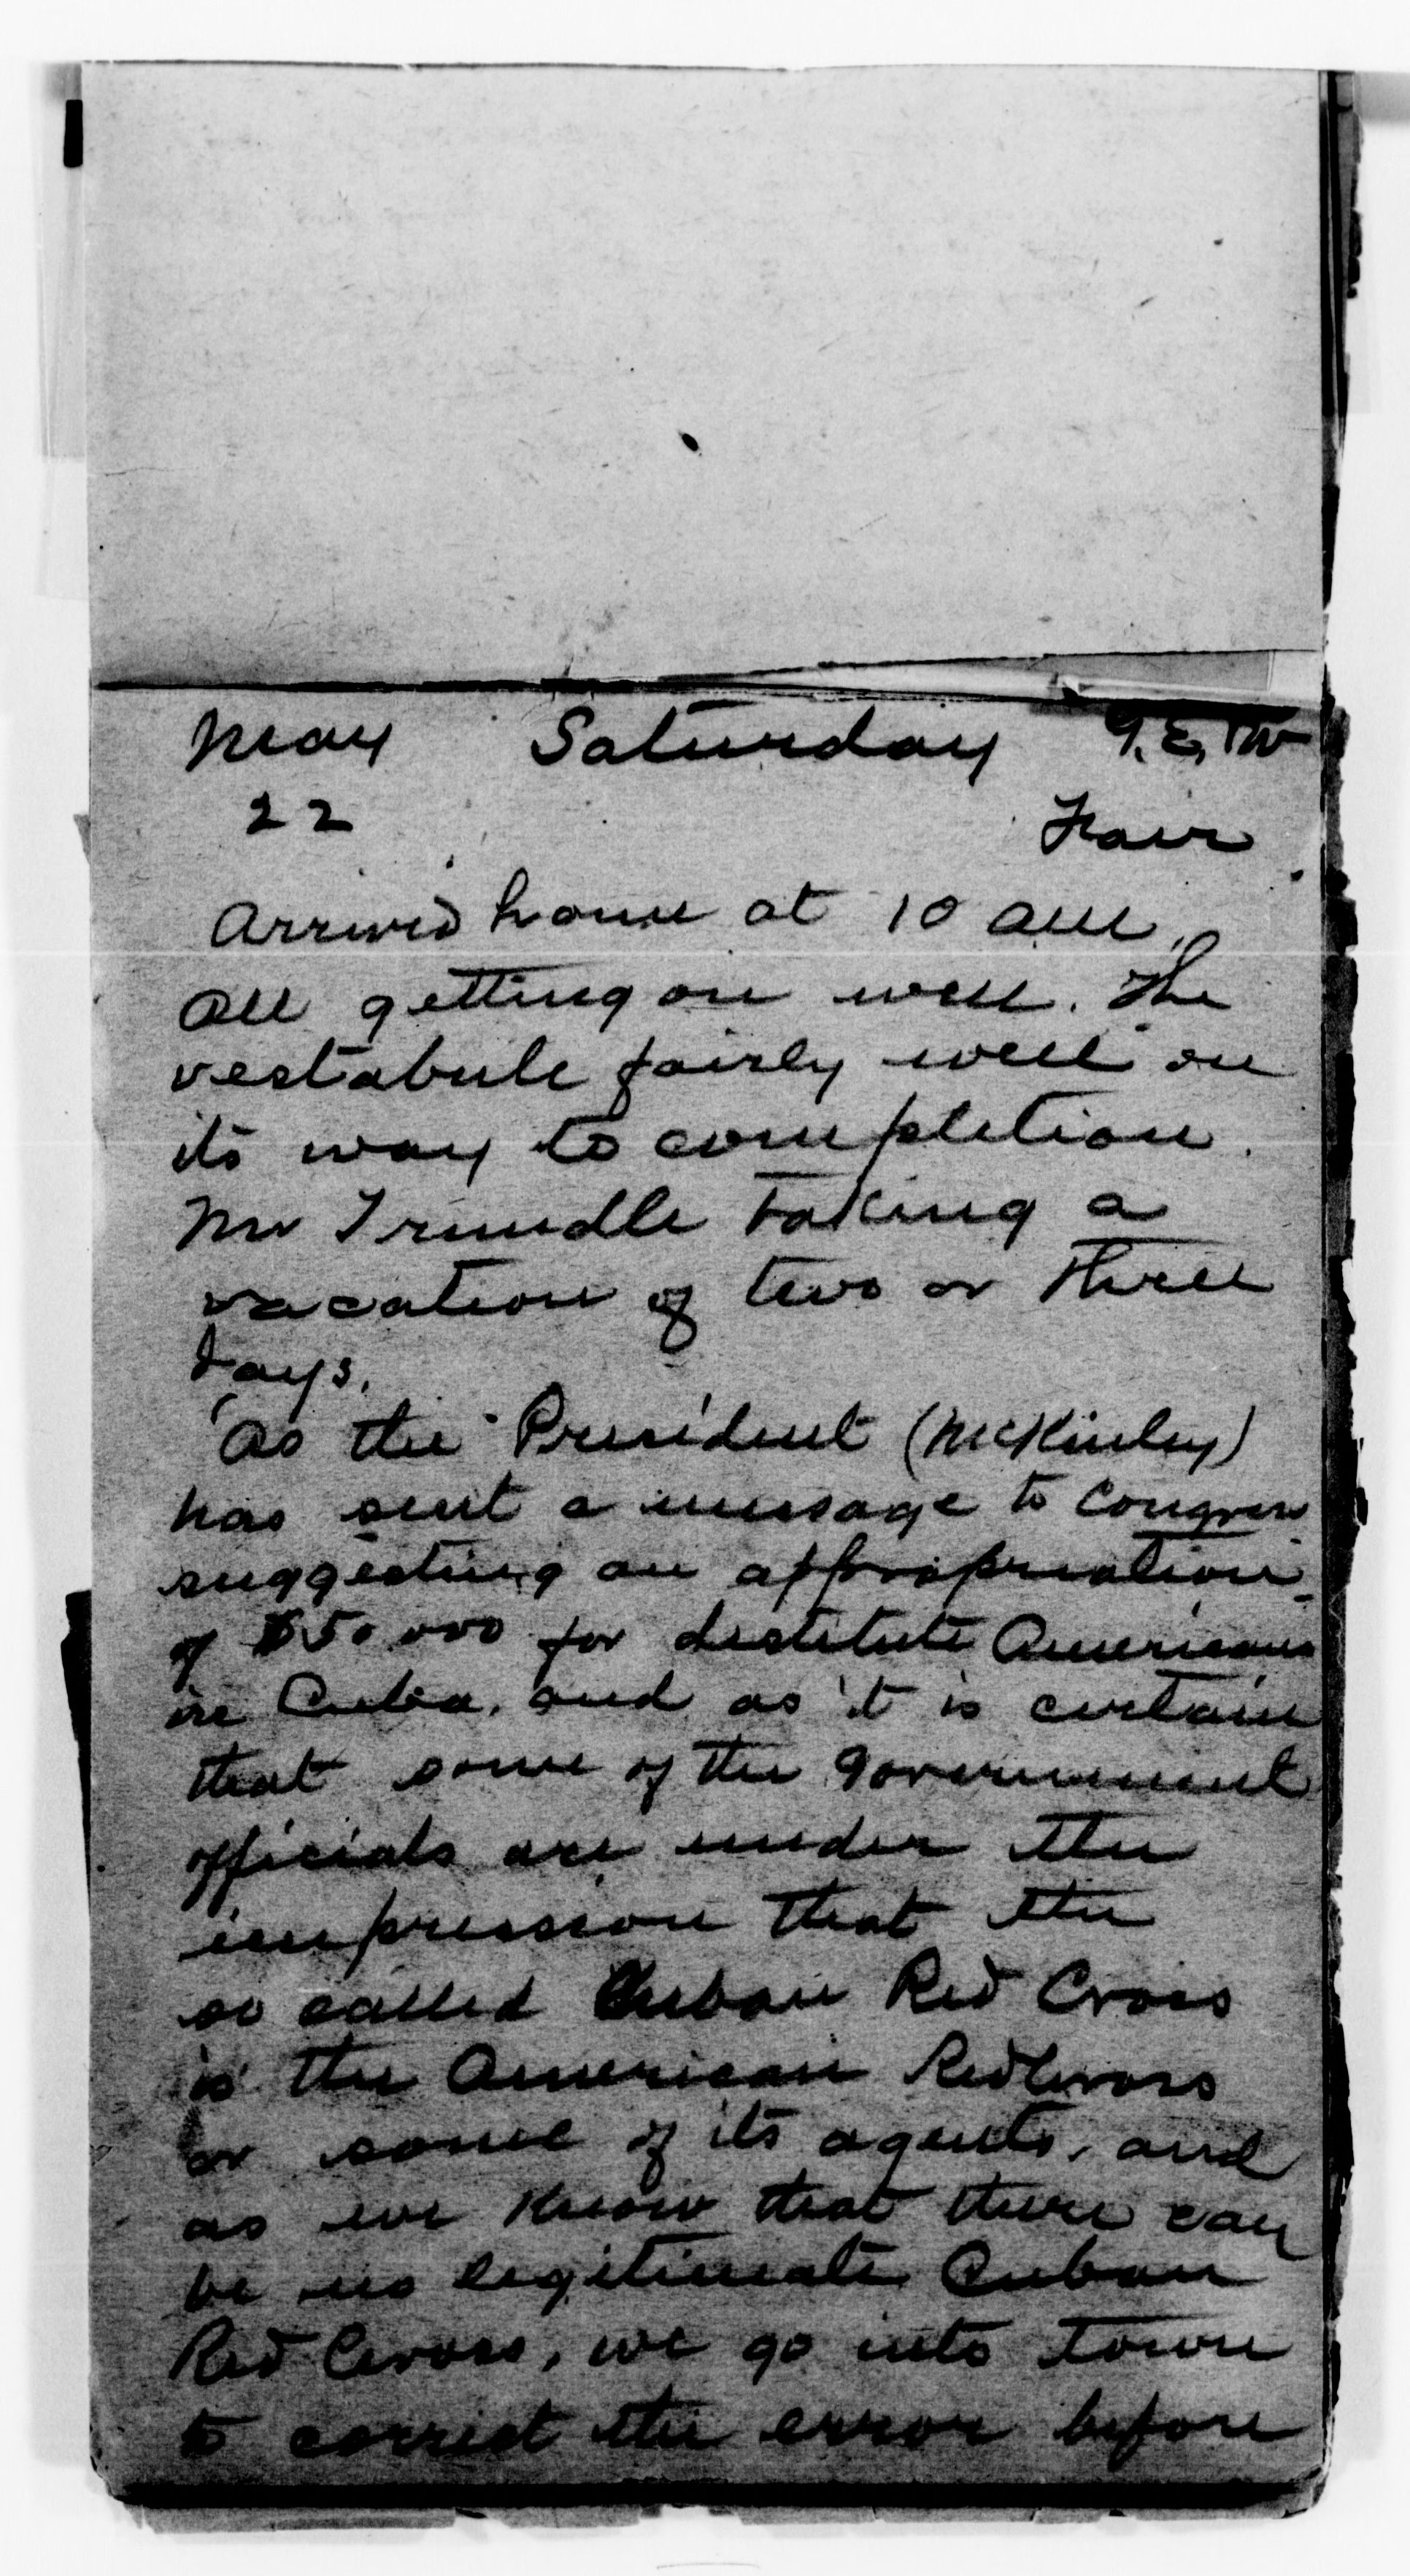 May Saturday G.E.
22 Fair
Arrived home at 10 am,
all getting on well. The
vestabule fairly well on
its way to completion.
Mr Trundle taking a
vacation of two or three
days.
As the President (McKinley)
has sent a message to Congress
suggesting an appropriation
of $50.000 for destitute Americans
in Cuba, and as it is certain
that some of the government
officials are under the
impression that the
so called Cuban Red Cross
is the American Red Cross
or some of its agents, and
as we know that there can
be no legitimate Cuban
Red Cross, we go into town
to correct the error before